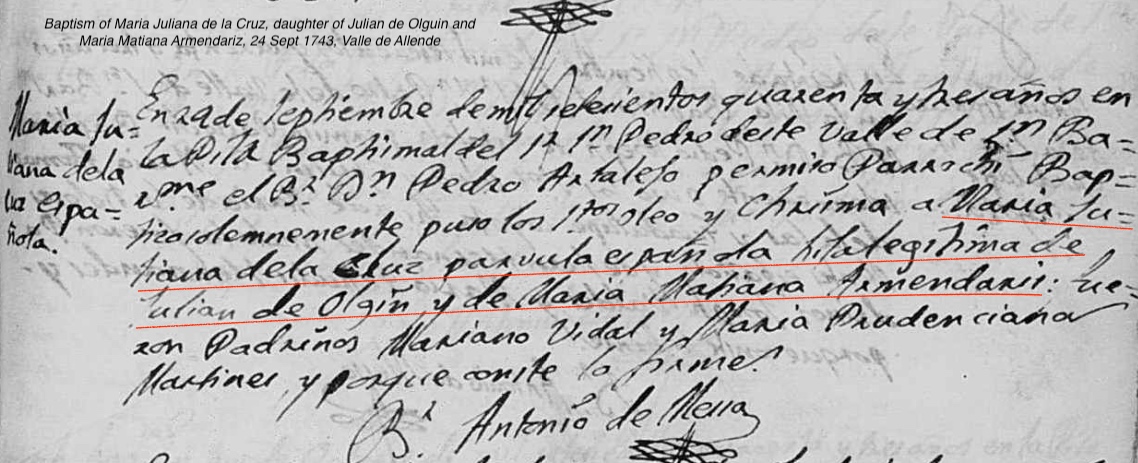 Baptism of Maria Juliana de la Cruz, daughter of Julian de Olguin and
Maria Matiana Armendariz, 24 Sept 1743, Valle de Allende
Maria Ju=
liana dela
Cruz espa=
ñola.
En 24 de Septiembre de mil setesientos quarenta y tres años en
la Pila Baptismal del Sr Sn Pedro deste Valle de Sn Ba=
rme el Br Dn Pedro Artalejo permiso Parrochi Bap=
tizo solemnemente puso los Stos oleo y Chrisma a Maria Ju=
liana dela Cruz parvula española hila legitima de
Julian de Olgin y de Maria Matiana Armendaris: fue=
ron Padrinos Mariano Vidal y Maria Prudenciana
Martines, y porque conste lo firme.
Br Antonio de Messa